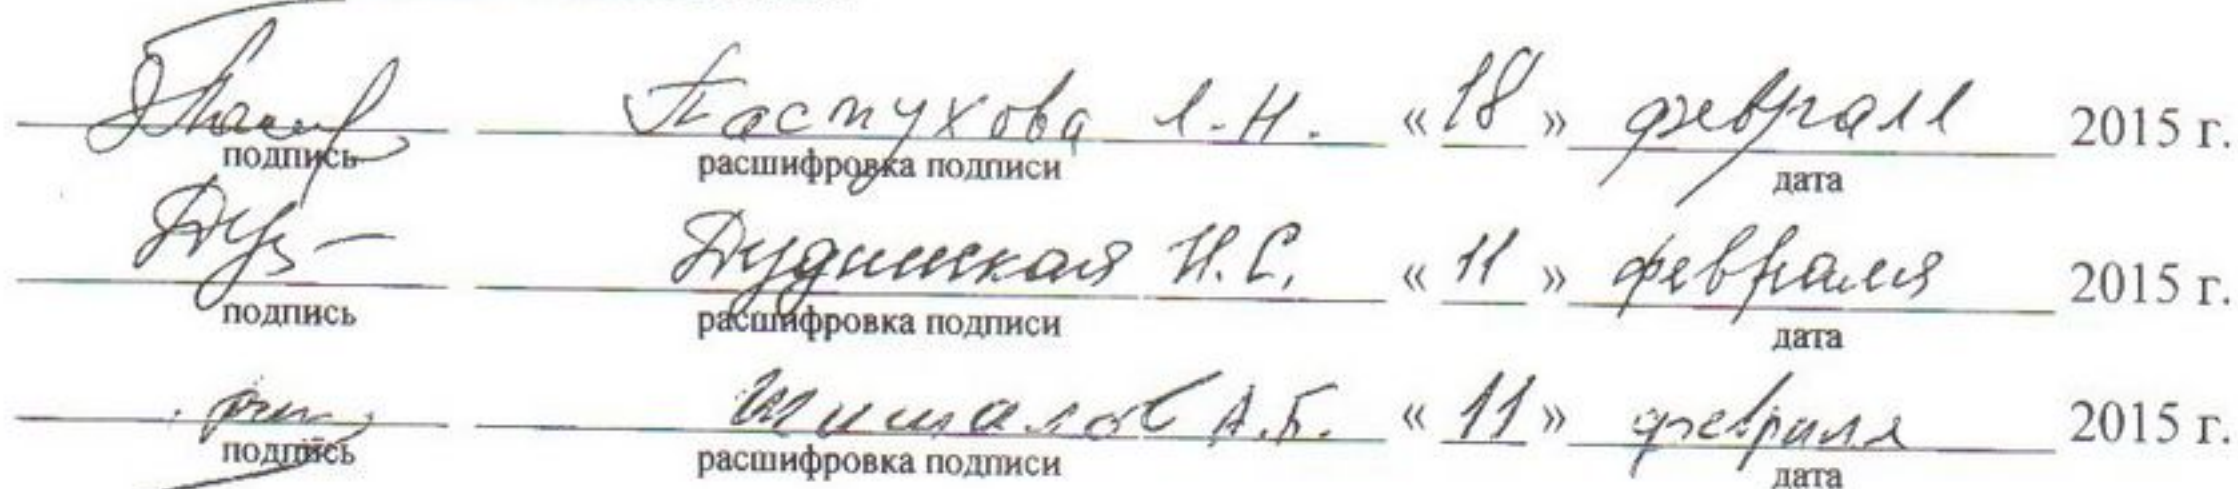 Пастухова Л.Н. «18» февраля 2015 г.
подпись расшифровка подписи дата
Дудинская Н.С. «11» февраля 2015 г.
подпись расшифровка подписи дата
А.Б. «11» февраля 2015 г.
подпись расшифровка подписи дата